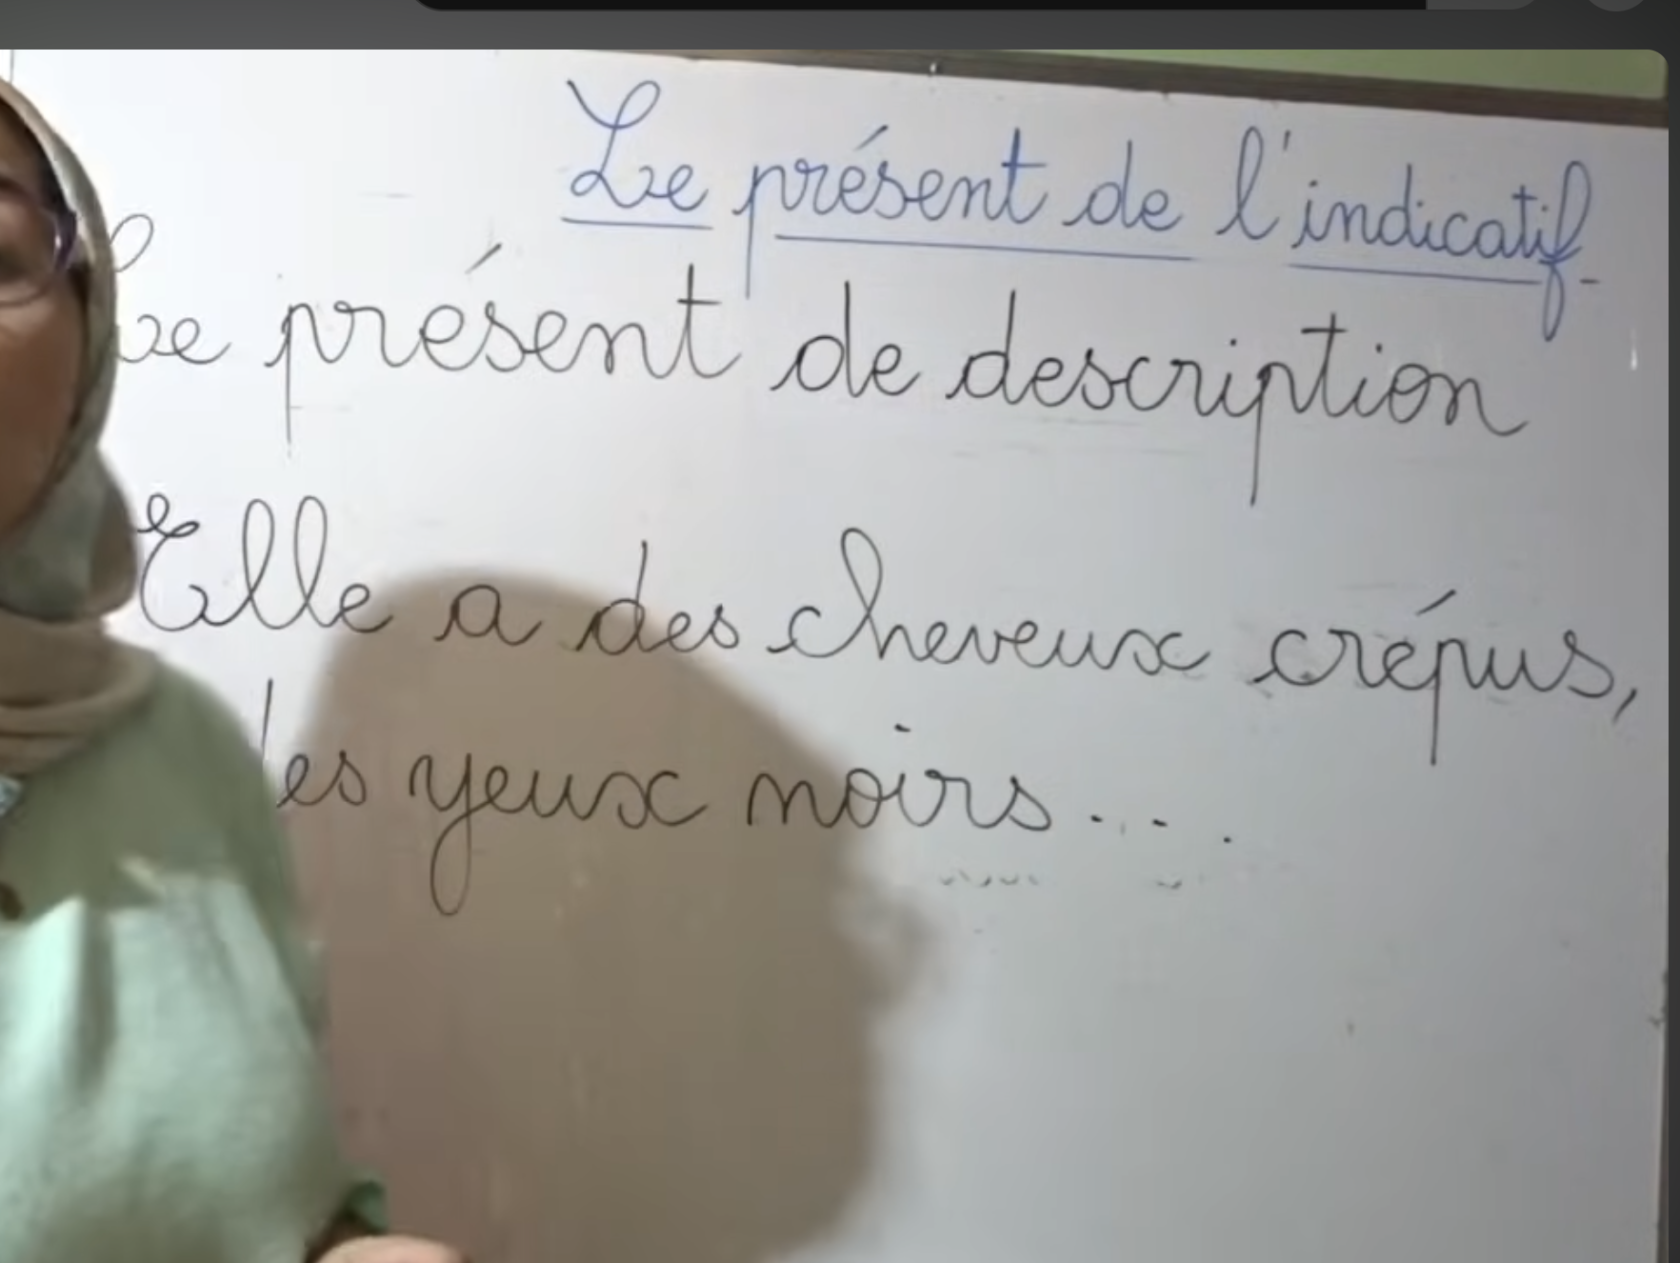 Le présent de l'indicatif.
Le présent de description
Elle a des cheveux crépus,
des yeux noirs...